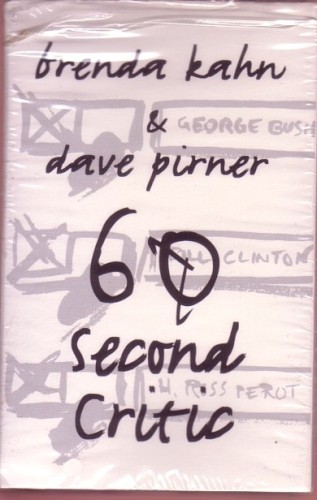 brenda kahn
GEORGE BUSH
&
dave pirner
BILL CLINTON
60
H. ROSS PEROT
second
critic